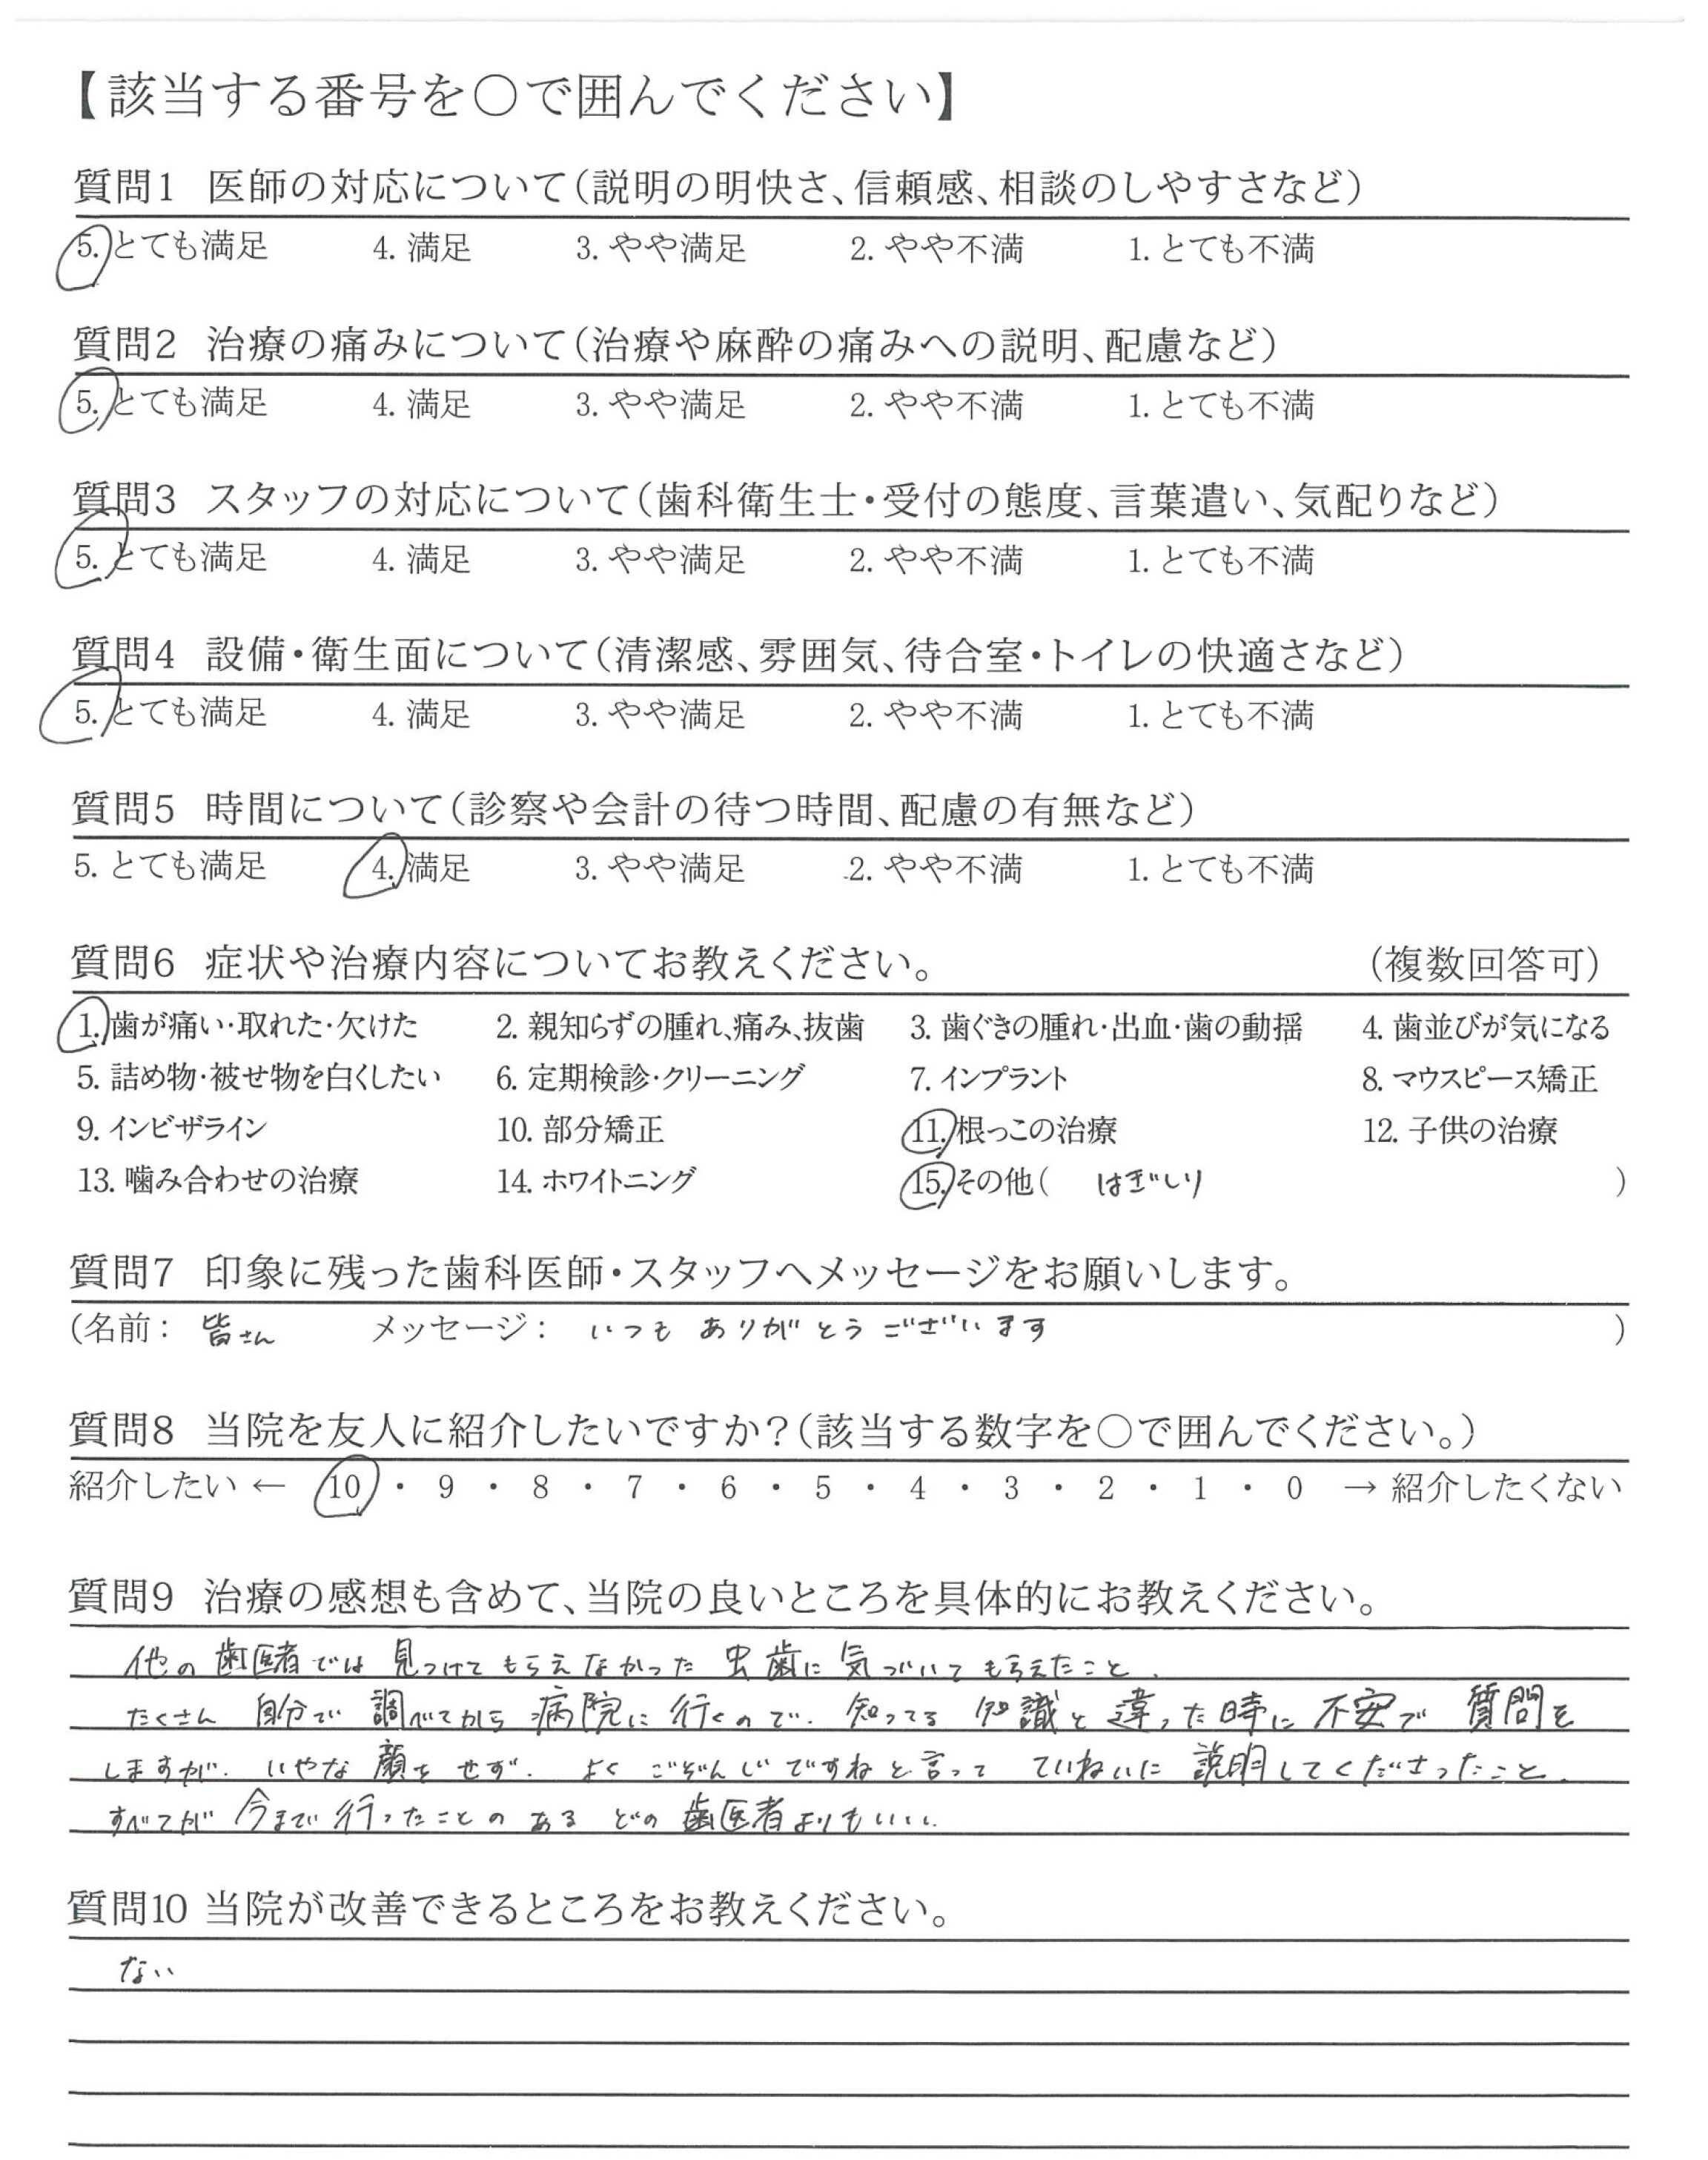 【該当する番号を○で囲んでください】
質問1 医師の対応について(説明の明快さ、信頼感、相談のしやすさなど)
5. とても満足 4. 満足 3. やや満足 2. やや不満 1. とても不満
質問2 治療の痛みについて(治療や麻酔の痛みへの説明、配慮など)
5. とても満足 4. 満足 3. やや満足 2. やや不満 1. とても不満
質問3 スタッフの対応について(歯科衛生士・受付の態度、言葉遣い、気配りなど)
5. とても満足 4. 満足 3. やや満足 2. やや不満 1. とても不満
質問4 設備・衛生面について(清潔感、雰囲気、待合室・トイレの快適さなど)
5. とても満足 4. 満足 3. やや満足 2. やや不満 1. とても不満
質問5 時間について(診察や会計の待つ時間、配慮の有無など)
5. とても満足 4. 満足 3. やや満足 2. やや不満 1. とても不満
質問6 症状や治療内容についてお教えください。 (複数回答可)
1. 歯が痛い・取れた・欠けた 2. 親知らずの腫れ、痛み、抜歯 3. 歯ぐきの腫れ・出血・歯の動揺 4. 歯並びが気になる
5. 詰め物・被せ物を白くしたい 6. 定期検診・クリーニング 7. インプラント 8. マウスピース矯正
9. インビザライン 10. 部分矯正 11. 根っこの治療 12. 子供の治療
13. 噛み合わせの治療 14. ホワイトニング 15. その他( はぎしり )
質問7 印象に残った歯科医師・スタッフへメッセージをお願いします。
(名前: 皆さん メッセージ: いつも ありがとうございます )
質問8 当院を友人に紹介したいですか?(該当する数字を○で囲んでください。)
紹介したい ← 10 ・ 9 ・ 8 ・ 7 ・ 6 ・ 5 ・ 4 ・ 3 ・ 2 ・ 1 ・ 0 → 紹介したくない
質問9 治療の感想も含めて、当院の良いところを具体的にお教えください。
他の歯医者では見つけてもらえなかった虫歯に気づいてもらえたこと、
たくさん自分で調べてから病院に行くので、知ってる知識と違った時に不安で質問を
しますが、いやな顔をせず、よくごぞんじですねと言って ていねいに説明してくださったこと、
すべてが今まで行ったことのあるどの歯医者よりもいい。
質問10 当院が改善できるところをお教えください。
ない